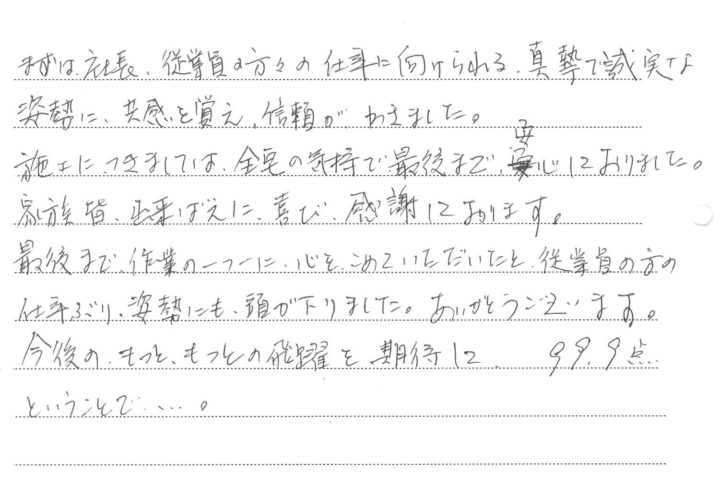 まずは社長、従業員の方々の仕事に向けられる、真摯で誠実な
姿勢に、共感を覚え、信頼がわきました。
施工につきましては、全幅の気持で最後まで、安心しておりました。
家族皆、出来ばえに、喜び、感謝しております。
最後まで、作業の一つ一つに、心をこめていただいたと、従業員の方の
仕事ぶり、姿勢にも、頭が下りました。ありがとうございます。
今後の、もっと、もっとの飛躍を期待して、 99.9点
ということで‥‥。